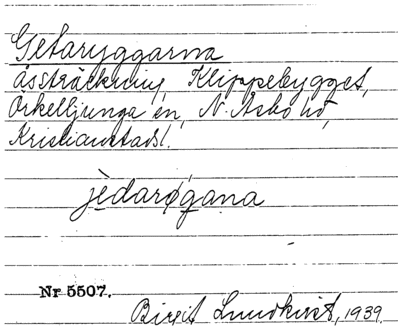 Getaryggarna
Åssträckning, Klippebygget,
Örkelljunga sn, N. Åsbo hd,
Kristianstads l.
jèdarǿgana
Nr 5507.
Birgit Lundkvist, 1939.